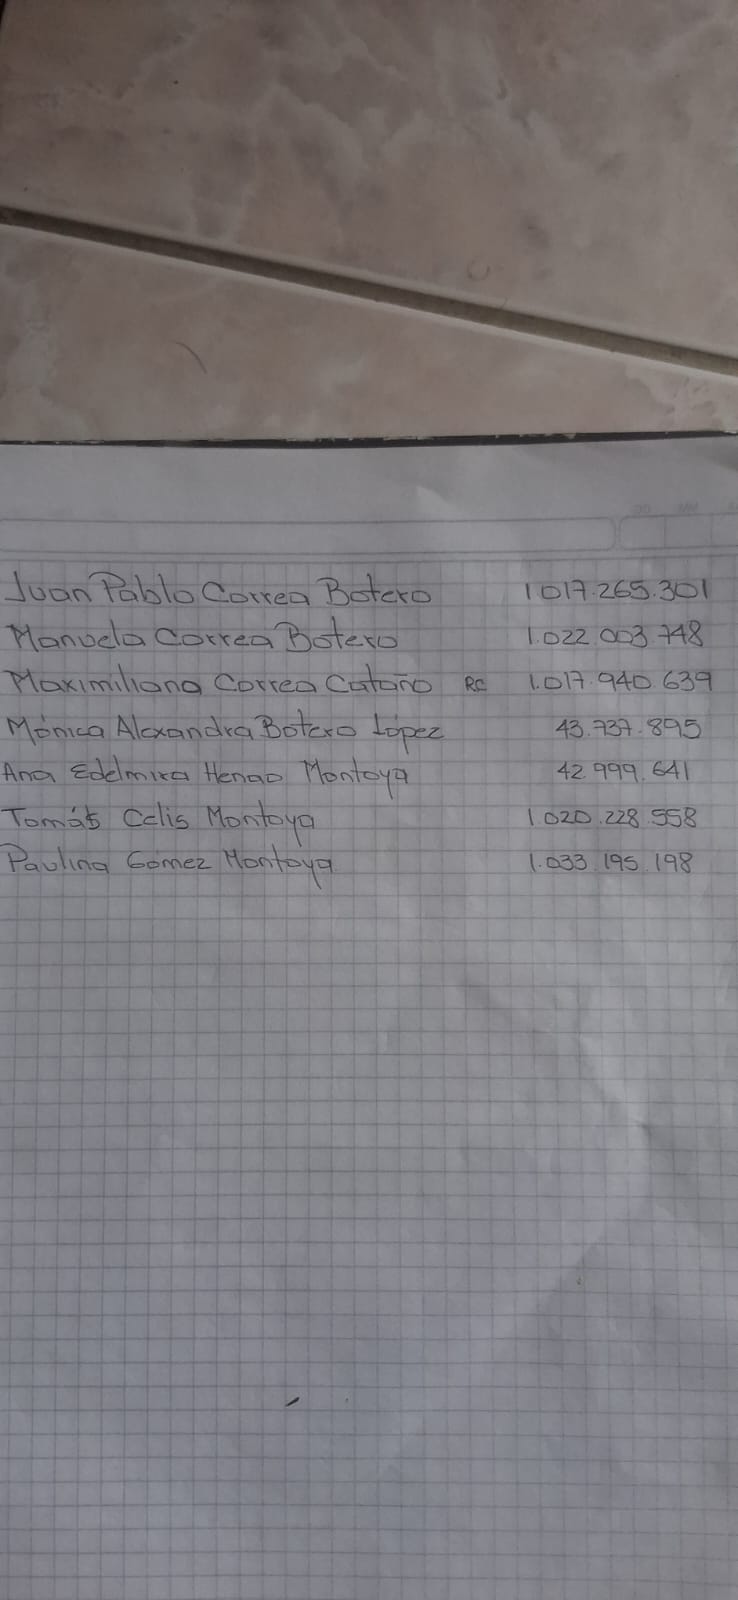 Juan Pablo Correa Botero 1.017.265.301
Manuela Correa Botero 1.022.003.748
Maximiliano Correa Cataño RC 1.017.940.639
Mónica Alexandra Botero López 43.737.895
Ana Edelmira Henao Montoya 42.999.641
Tomás Celis Montoya 1.020.228.558
Paulina Gómez Montoya 1.033.195.198